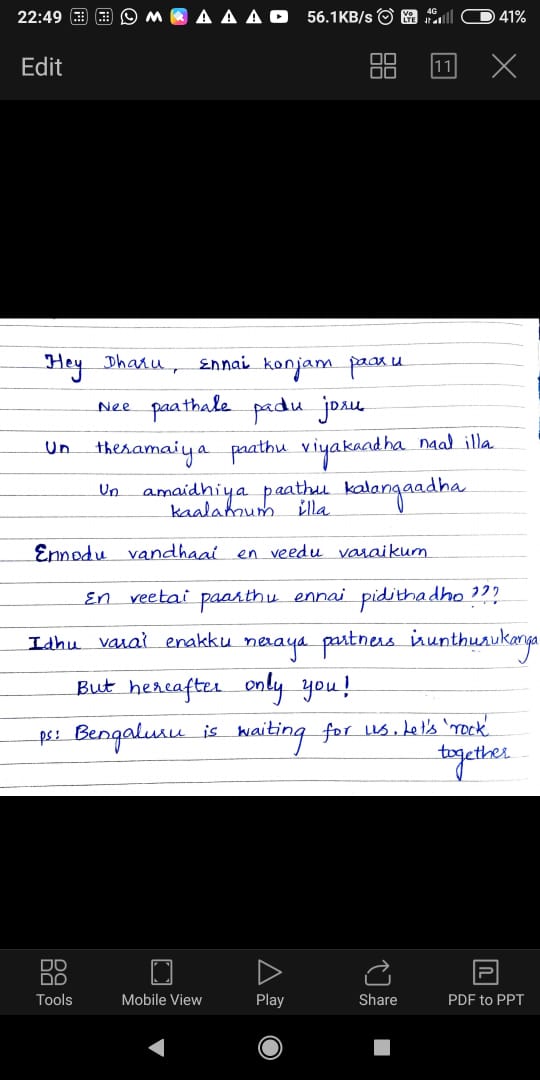 22:49 56.1KB/s Vo LTE 4G 41%
Edit 11
Hey Dharu, Ennai konjam paaru
Nee paathale padu joru
Un theramaiya paathu viyakaadha naal illa
Un amaidhiya paathu kalangaadha
kaalamum illa
Ennodu vandhaai en veedu varaikum
En veetai paarthu ennai pidithadho ???
Idhu varai enakku neraya partners irunthurukanga
But hereafter only you!
ps: Bengaluru is waiting for us. Let's 'rock'
together
Tools Mobile View Play Share PDF to PPT